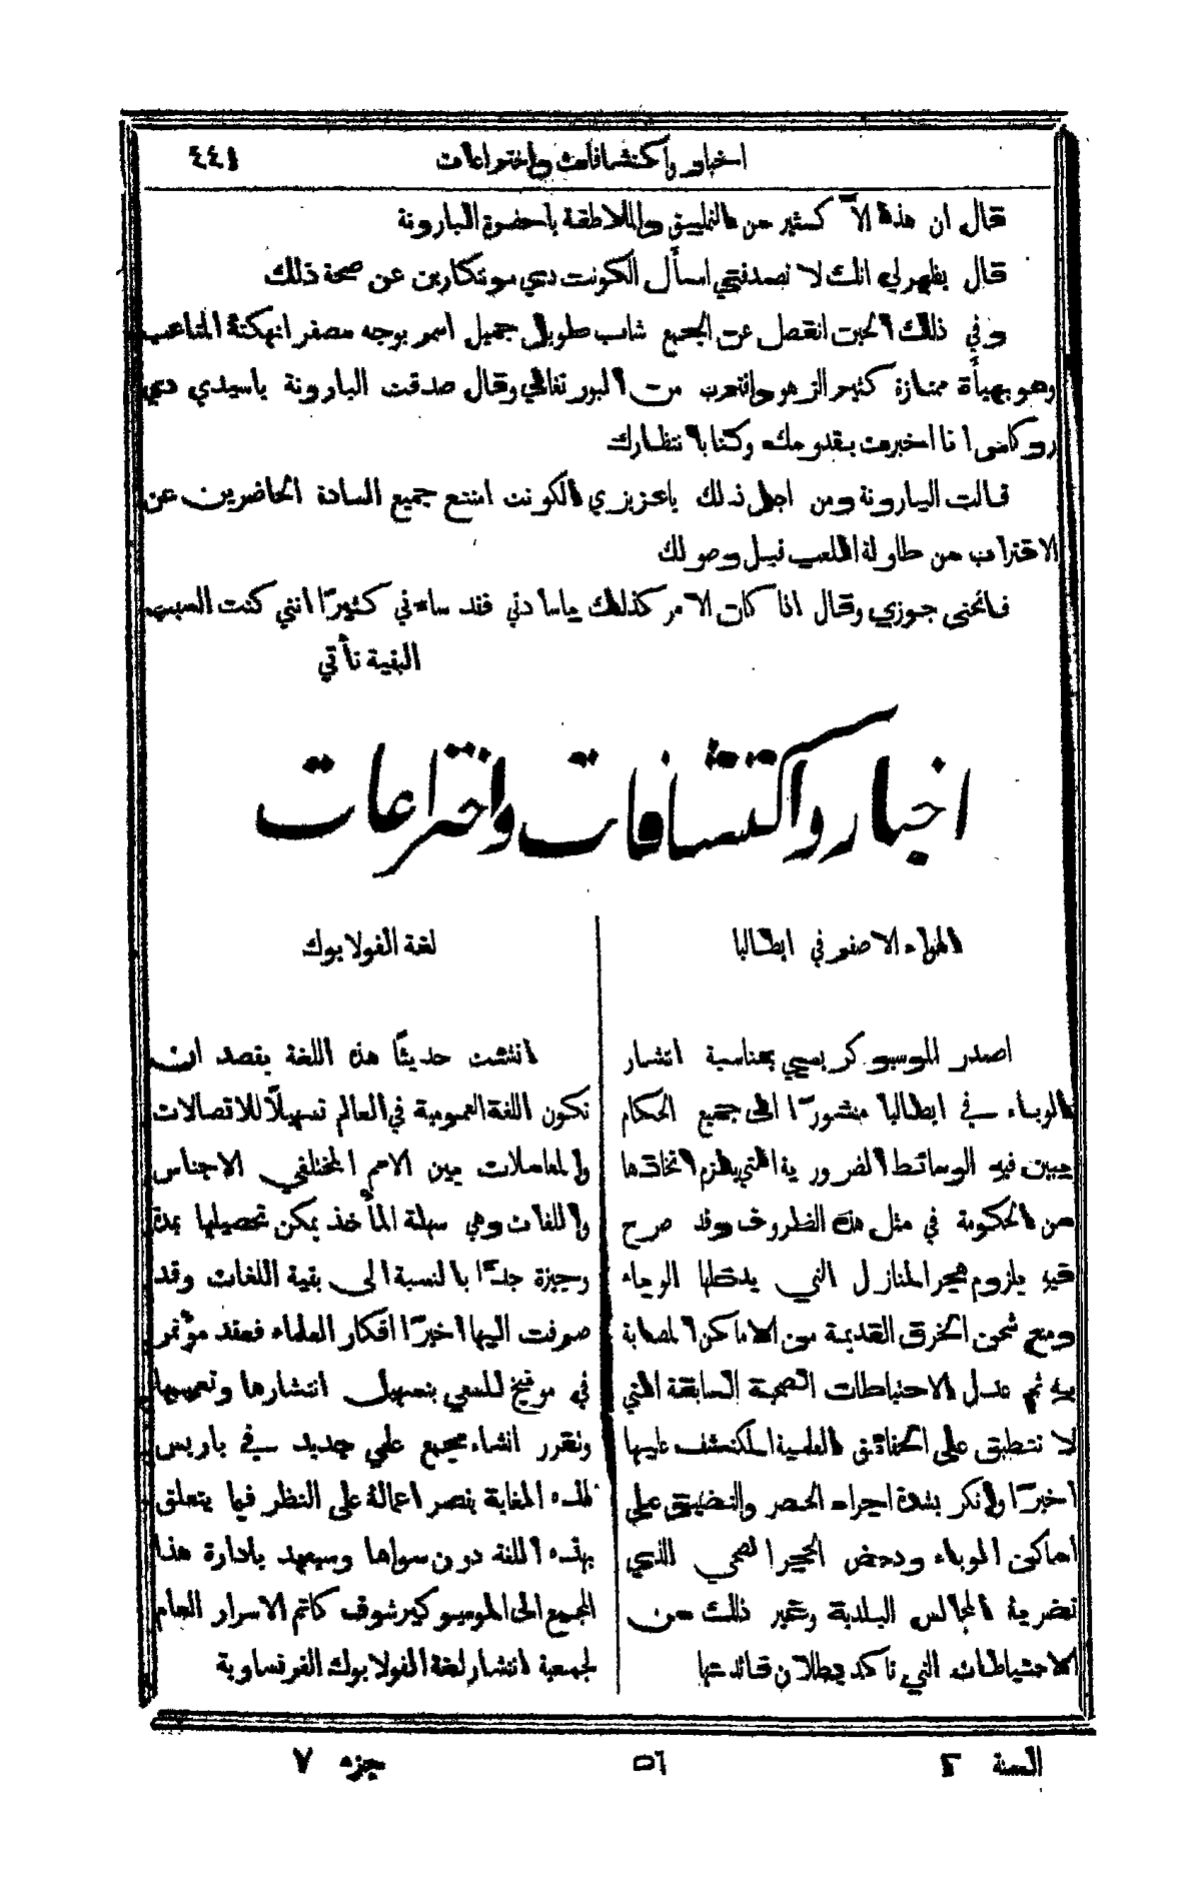 اخبار واكتشافات واختراعات ٤٤١
قال ان هذا لاّ كثير من التمليق والملاطفة ياحضرة البارونة
قال يظهر لي انك لا تصدقني اسأل الكونت دي مونتكارين عن صحة ذلك
وفي ذلك الحين انفصل عن الجمع شاب طويل جميل اسمر بوجه مصفر انهكته المتاعب
وهو بهيأة ممتازة كثير الزهو واقترب من البورتفالي وقال صدقت البارونة ياسيدي دي
روكاس انا اخبرت بقدومك وكنا بانتظارك
قالت البارونة ومن اجل ذلك ياعزيزي الكونت امتنع جميع السادة الحاضرين عن
الاقتراب من طاولة اللعب قبل وصولك
فانحنى جوزي وقال اذا كان الامر كذلك ياسادتي فقد ساءني كثيرًا انني كنت السبب
البقية تأتي
اخبار واكتشافات واختراعات
الهواء الاصفر في ايطاليا
اصدر الموسيو كريسبي بمناسبة انتشار
الوباء في ايطاليا منشورًا الى جميع الحكام
يبين فيه الوسائط الضرورية التي يلزم اتخاذها
من الحكومة في مثل هذه الظروف وقد صرح
فيه بلزوم هجر المنازل التي يدخلها الوباء
ومنع شحن الخرق القديمة من الاماكن المصابة
به ثم عدل الاحتياطات الصحية السابقة التي
لا تنطبق على الحقائق العلمية المكتشف عليها
اخيرًا وانكر بشدة اجراء الحصر والتضييق على
اماكن الوباء ودحض الحجر الصحي الذي
تضربه المجالس البلدية وغير ذلك من
الاحتياطات التي تاكد بطلان فائدتها
لغة الفولابوك
انشئت حديثًا هذه اللغة بقصد ان
تكون اللغة العمومية في العالم تسهيلاً للاتصالات
والمعاملات بين الامم المختلفي الاجناس
واللغات وهي سهلة المأخذ يمكن تحصيلها بمدة
وجيزة جدًا بالنسبة الى بقية اللغات وقد
صرفت اليها اخيرًا افكار العلماء فعقد مؤتمر
في مونيخ للسعي بتسهيل انتشارها وتعميمها
وتقرر انشاء مجمع علمي جديد في باريس
لهذه الغاية يقصر اعماله على النظر فيما يتعلق
بهذه اللغة دون سواها وسيعهد بادارة هذا
المجمع الى الموسيو كيرشوف كاتم الاسرار العام
لجمعية انتشار لغة الفولابوك الفرنساوية
السنة ٢ ٥٦ جزء ٧